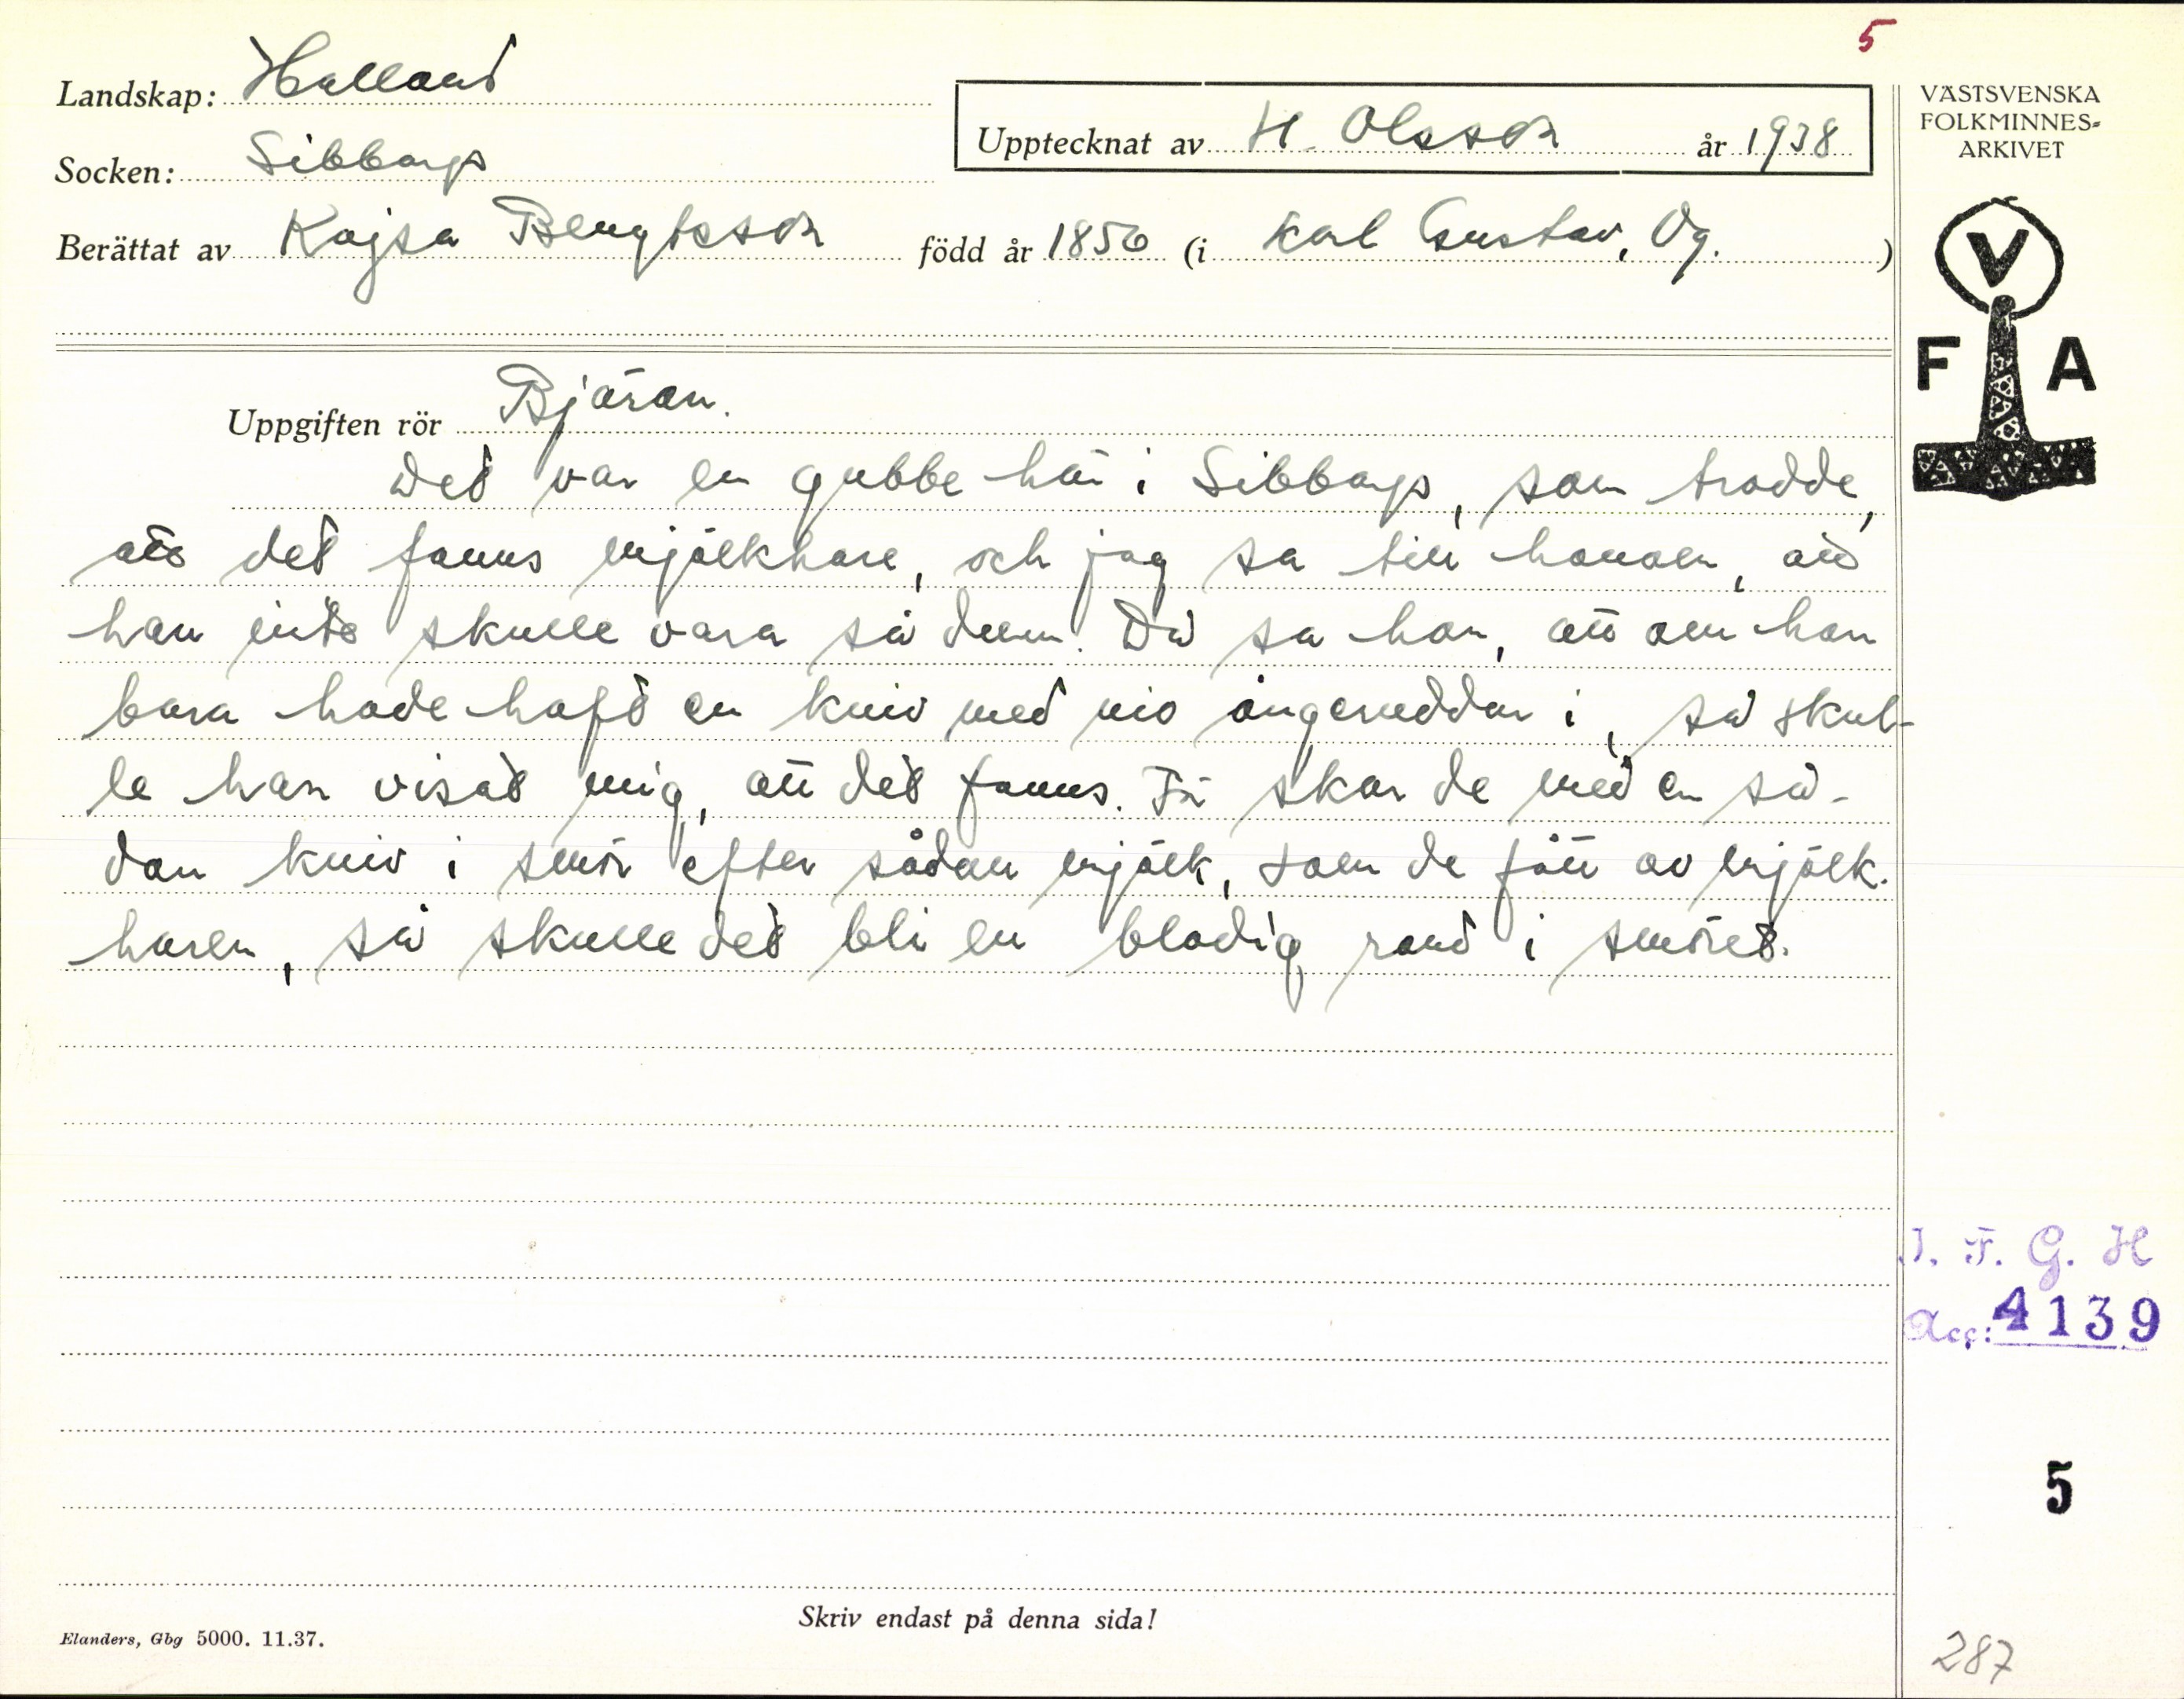 5
Landskap: Halland
Socken: Sibbarp
Upptecknat av H. Olsson år 1938
Berättat av Kajsa Bengtsson född år 1856 (i Karl Gustav, Vg.)
VÄSTSVENSKA
FOLKMINNES-
ARKIVET
V
F A
Uppgiften rör Bjäran.
Det var en gubbe här i Sibbarp, som trodde,
att det fanns mjölkhare, och jag sa till honom, att
han inte skulle vara så dum. Då sa han, att om han
bara hade haft en kniv med nio ormhuvuden i, så skul-
le han visat mig, att det fanns. För skar de med en så-
dan kniv i smör efter sådan mjölk, som de fått av mjölk-
haren, så skulle det bli en blodig rand i smöret.
I. F. G. H
Acc: 4139
5
Skriv endast på denna sida!
Elanders, Gbg 5000. 11.37.
287